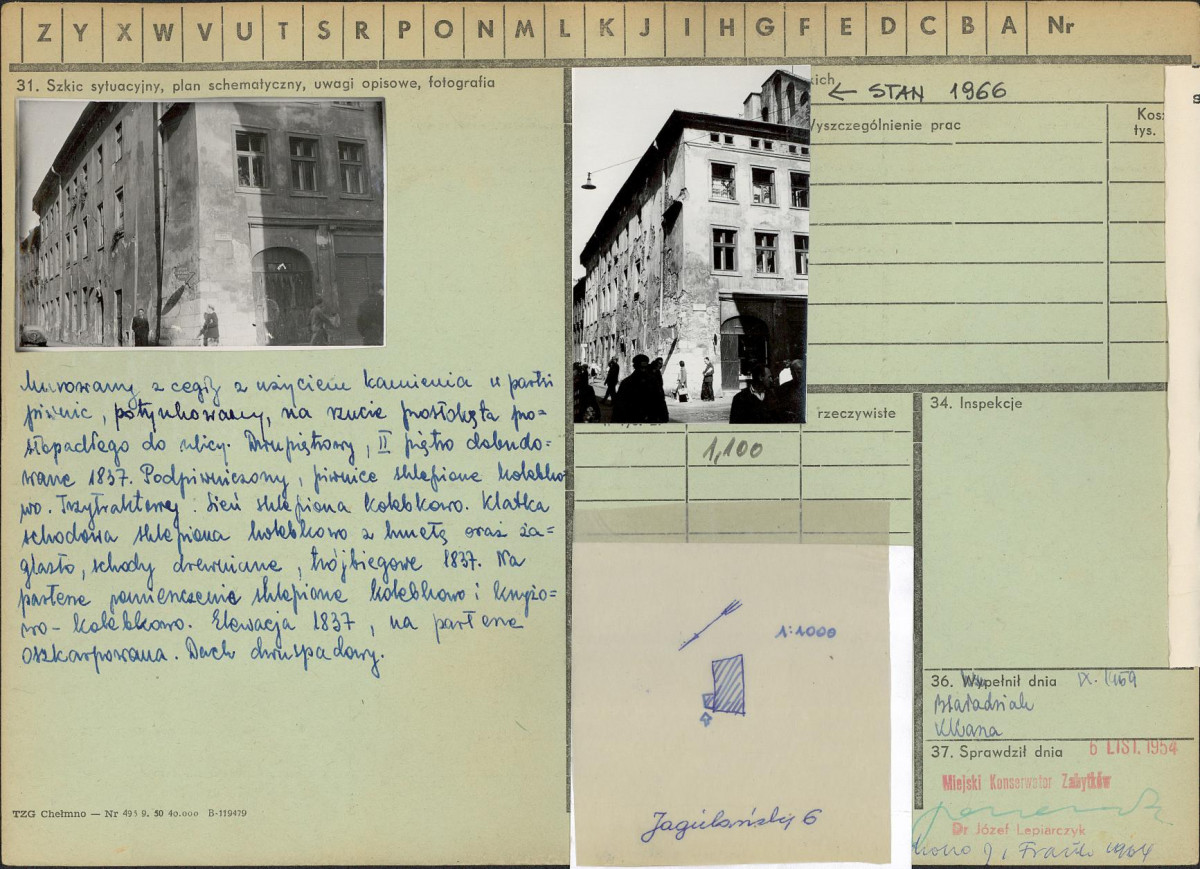 Z Y X W V U T S R P O N M L K J I H G F E D C B A Nr
31. Szkic sytuacyjny, plan schematyczny, uwagi opisowe, fotografia
Murowany z cegły z użyciem kamienia w partii
piwnic, potynkowany, na rzucie prostokąta pro=
stopadłego do ulicy. Dwupiętrowy, II piętro dobudo=
wane 1837. Podpiwniczony, piwnice sklepione kolebko
wo. Trzytraktowy. Sień sklepiona kolebkowo. Klatka
schodowa sklepiona kolebkowo z lunetą oraz ża=
glasto, schody drewniane, trójbiegowe 1837. Na
parterze pomieszczenia sklepione kolebkowo i krzyżo=
wo-kolebkowo. Elewacja 1837, na parterze
oszkarpowana. Dach dwuspadowy.
TZG Chełmno — Nr 493 9. 50 40.000 B-119479
ich
← STAN 1966
Wyszczególnienie prac
Kosz
tys.
rzeczywiste
1,100
34. Inspekcje
1:1000
Jagiellońska 6
36. Wypełnił dnia IX. 1959
37. Sprawdził dnia 6 LIST. 1954
Miejski Konserwator Zabytków
Dr Józef Lepiarczyk
1964